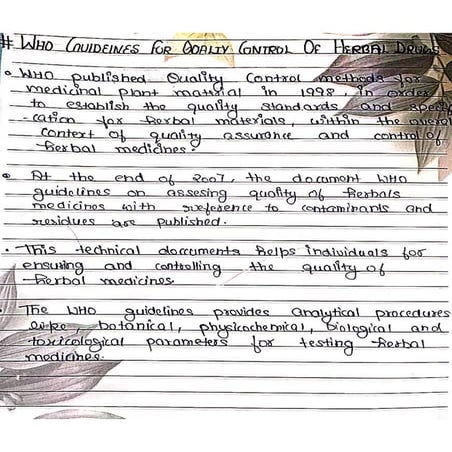 # WHO GUIDEINES FOR QOALTY CONTROL OF HERBAL DRUGS
• WHO published Quality Control methods for
medicinal plant material in 1998, in order
to establish the quality standards and specifi
-cation for herbal materials, within the overall
context of quality assurance and control of
herbal medicines.
• At the end of 2007, the document WHO
guidelines on assesing quality of herbals
medicines with reference to contaminants and
residues are published.
• This technical doccuments helps individuals for
ensuring and controlling the quality of
herbal medicines.
• The WHO guidelines provides analytical procedures
like, botanical, physicochemical, biological and
toxicological parameters for testing herbal
medicines.